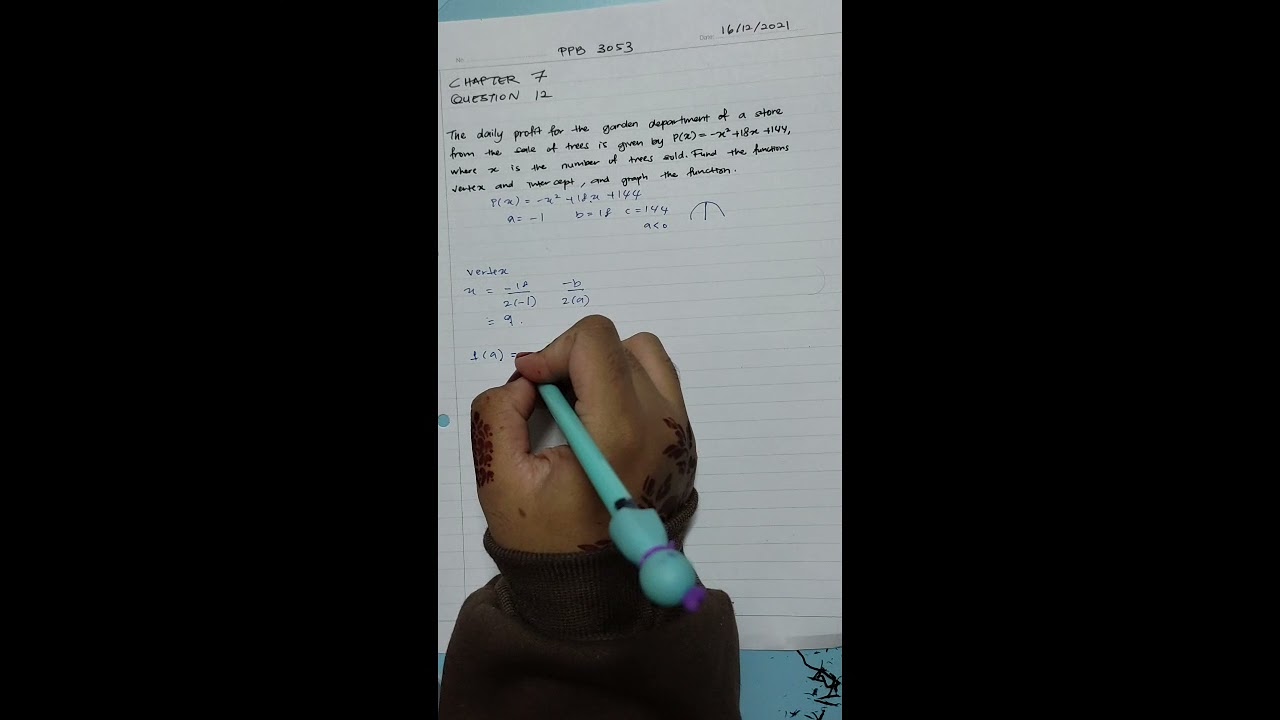 No.
PPB 3053
Date: 16/12/2021
CHAPTER 7
QUESTION 12
The daily profit for the garden department of a store
from the sale of trees is given by P(x) = -x² + 18x + 144,
where x is the number of trees sold. Fund the functions
vertex and intercept, and graph the function.
P(x) = -x² + 18x + 144
a = -1 b = 18 c = 144
a < 0
vertex
x = -18/2(-1) -b/2(a)
= 9.
f(9) =